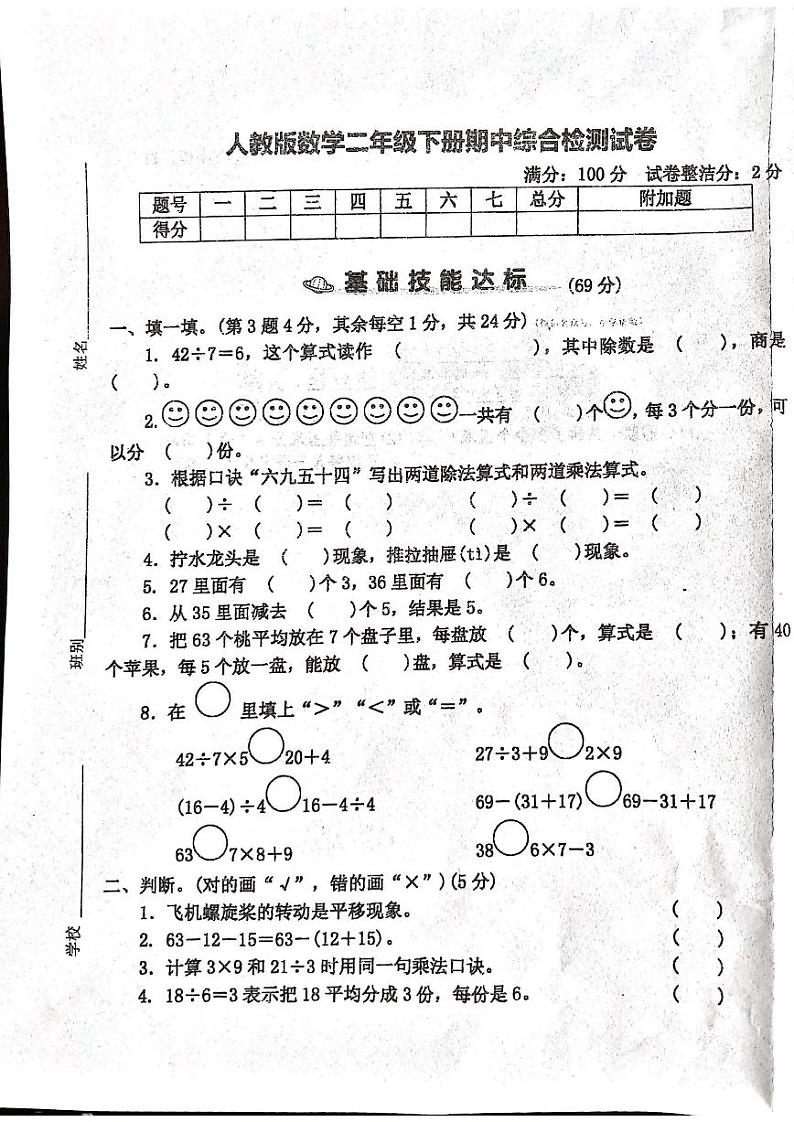 人教版数学二年级下册期中综合检测试卷
满分：100 分 试卷整洁分：2 分
题号 一 二 三 四 五 六 七 总分 附加题
得分
基础技能达标 (69 分)
一、填一填。(第 3 题 4 分，其余每空 1 分，共 24 分)
1. 42÷7=6，这个算式读作 ( )，其中除数是 ( )，商是
( )。
2. 一共有 ( )个 ，每 3 个分一份，可
以分 ( )份。
3. 根据口诀“六九五十四”写出两道除法算式和两道乘法算式。
( )÷ ( )= ( ) ( )÷ ( )= ( )
( )× ( )= ( ) ( )× ( )= ( )
4. 拧水龙头是 ( )现象，推拉抽屉(tì)是 ( )现象。
5. 27 里面有 ( )个 3，36 里面有 ( )个 6。
6. 从 35 里面减去 ( )个 5，结果是 5。
7. 把 63 个桃平均放在 7 个盘子里，每盘放 ( )个，算式是 ( )；有 40
个苹果，每 5 个放一盘，能放 ( )盘，算式是 ( )。
8. 在 ○ 里填上“>”“<”或“=”。
42÷7×5○20+4 27÷3+9○2×9
(16-4)÷4○16-4÷4 69-(31+17)○69-31+17
63○7×8+9 38○6×7-3
二、判断。(对的画“√”，错的画“×”)(5 分)
1. 飞机螺旋桨的转动是平移现象。 ( )
2. 63-12-15=63-(12+15)。 ( )
3. 计算 3×9 和 21÷3 时用同一句乘法口诀。 ( )
4. 18÷6=3 表示把 18 平均分成 3 份，每份是 6。 ( )
姓名
班别
学校